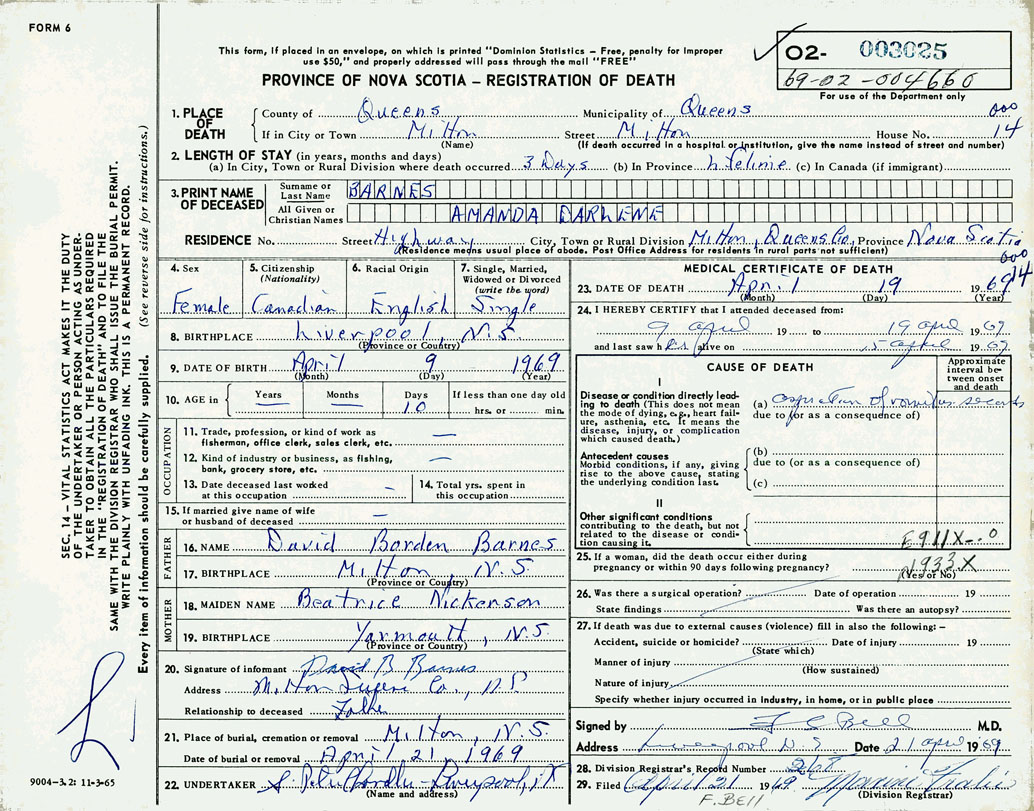 FORM 6
This form, if placed in an envelope, on which is printed "Dominion Statistics — Free, penalty for improper
use $50," and properly addressed will pass through the mail "FREE"
PROVINCE OF NOVA SCOTIA — REGISTRATION OF DEATH
O2- 003025
69-02-004660
For use of the Department only
1. PLACE OF DEATH
County of Queens Municipality of Queens
000
If in City or Town Milton Street Milton House No. 14
(Name) (If death occurred in a hospital or institution, give the name instead of street and number)
2. LENGTH OF STAY (in years, months and days)
(a) In City, Town or Rural Division where death occurred 3 Days (b) In Province Lifetime (c) In Canada (if immigrant)
3. PRINT NAME OF DECEASED
Surname or Last Name BARNES
All Given or Christian Names AMANDA DARLENE
RESIDENCE No. Street Highway City, Town or Rural Division Milton, Queens Co, Province Nova Scotia
(Residence means usual place of abode. Post Office Address for residents in rural parts not sufficient)
000
14
4. Sex
Female
5. Citizenship
(Nationality)
Canadian
6. Racial Origin
English
7. Single, Married,
Widowed or Divorced
(write the word)
Single
8. BIRTHPLACE Liverpool, N.S.
(Province or Country)
9. DATE OF BIRTH April 9 1969
(Month) (Day) (Year)
10. AGE in
Years Months Days If less than one day old
— — 10 hrs. or min.
OCCUPATION
11. Trade, profession, or kind of work as —
fisherman, office clerk, sales clerk, etc.
12. Kind of industry or business, as fishing, —
bank, grocery store, etc.
13. Date deceased last worked
at this occupation —
14. Total yrs. spent in
this occupation
15. If married give name of wife
or husband of deceased —
FATHER
16. NAME David Borden Barnes
17. BIRTHPLACE Milton, N.S
(Province or Country)
MOTHER
18. MAIDEN NAME Beatrice Nickerson
19. BIRTHPLACE Yarmouth, N.S.
(Province or Country)
20. Signature of informant David B Barnes
Address Milton Queens Co., N.S
Relationship to deceased Father
21. Place of burial, cremation or removal Milton, N.S.
Date of burial or removal April 21 1969
22. UNDERTAKER Liverpool, N.S
(Name and address)
MEDICAL CERTIFICATE OF DEATH
23. DATE OF DEATH April 19 1969
(Month) (Day) (Year)
24. I HEREBY CERTIFY that I attended deceased from:
9 April 19 to 19 April 1969
and last saw her alive on 15 April 1969
CAUSE OF DEATH
Approximate
interval be-
tween onset
and death
I
Disease or condition directly lead-
ing to death (This does not mean
the mode of dying, e.g., heart fail-
ure, asthenia, etc. It means the
disease, injury, or complication
which caused death.)
(a) aspiration of vomitus seconds
due to (or as a consequence of)
Antecedent causes
Morbid conditions, if any, giving
rise to the above cause, stating
the underlying condition last.
(b)
due to (or as a consequence of)
(c)
II
Other significant conditions
contributing to the death, but not
related to the disease or condi-
tion causing it.
E911X-.0
25. If a woman, did the death occur either during
pregnancy or within 90 days following pregnancy?
N933X
(Yes or No)
26. Was there a surgical operation? Date of operation 19
State findings Was there an autopsy?
27. If death was due to external causes (violence) fill in also the following: —
Accident, suicide or homicide? Date of injury 19
(State which)
Manner of injury
(How sustained)
Nature of injury
Specify whether injury occurred in industry, in home, or in public place
Signed by F C Bell M.D.
Address Liverpool N.S Date 21 April 1969
28. Division Registrar's Record Number 268
29. Filed April 21 1969
(Division Registrar)
F. BELL
SEC. 14 — VITAL STATISTICS ACT MAKES IT THE DUTY
OF THE UNDERTAKER OR PERSON ACTING AS UNDER-
TAKER TO OBTAIN ALL THE PARTICULARS REQUIRED
IN THE "REGISTRATION OF DEATH" AND TO FILE THE
SAME WITH THE DIVISION REGISTRAR WHO SHALL ISSUE THE BURIAL PERMIT.
WRITE PLAINLY WITH UNFADING INK. THIS IS A PERMANENT RECORD.
Every item of information should be carefully supplied. (See reverse side for instructions.)
9004-3.2: 11-3-65